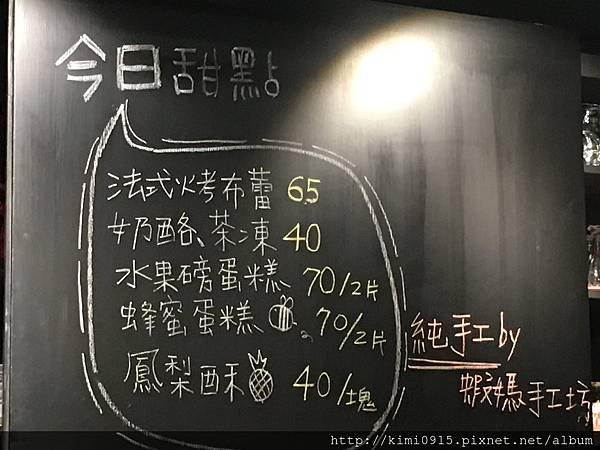 今日甜點
法式烤布蕾 65
奶酪、茶凍 40
水果磅蛋糕 70/2片
蜂蜜蛋糕 70/2片
鳳梨酥 40/塊
純手工by
蝦媽手工坊
http://kimi0915.pixnet.net/album